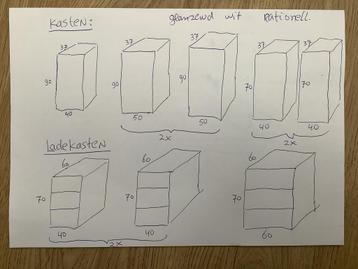 kasten: glanzend wit Rationell.
37 37 37 37 37
90 90 90 70 70
40 50 50 40 40
2x 2x
ladekasten
60 60 60
70 70
40 40 60
2x